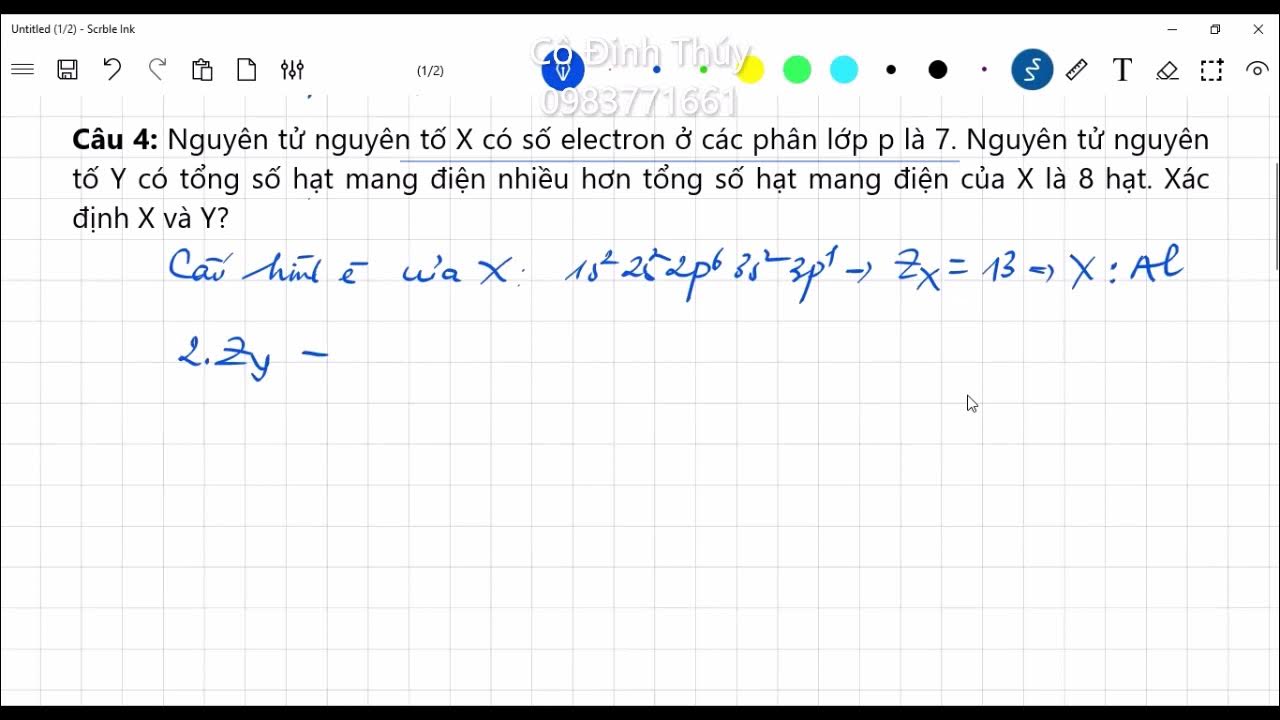 Untitled (1/2) - Scrble Ink
Cô Đinh Thúy
(1/2)
T
0983771661
Câu 4: Nguyên tử nguyên tố X có số electron ở các phân lớp p là 7. Nguyên tử nguyên
tố Y có tổng số hạt mang điện nhiều hơn tổng số hạt mang điện của X là 8 hạt. Xác
định X và Y?
Cấu hình e của X: 1s² 2s² 2p⁶ 3s² 3p¹ → Z_X = 13 → X : Al
2.Z_Y -